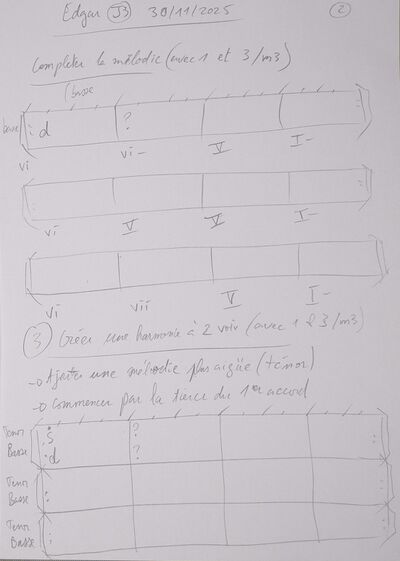 Edgar J3 30/11/2025 2
Completer la mélodie (avec 1 et 3/m3)
(basse
basse : d ? :
vi vi- V I-
: :
vi V V I-
vi vii V I-
3 Créer une harmonie à 2 voix (avec 1 & 3/m3)
-o Ajouter une mélodie plus aigüe (ténor)
-o Commencer par la tierce du 1er accord
Tenor : s ? :
Basse : d ? :
Tenor
Basse : :
Tenor
Basse : :